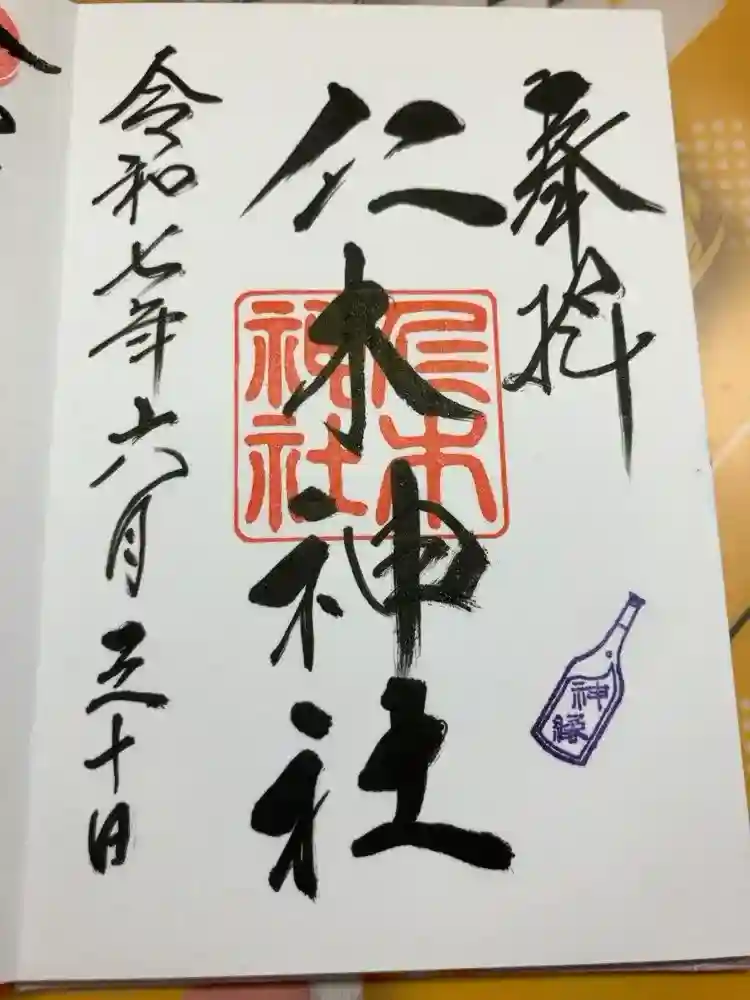 奉拝
仁木神社
仁木
神社
神縁
令和七年六月三十日